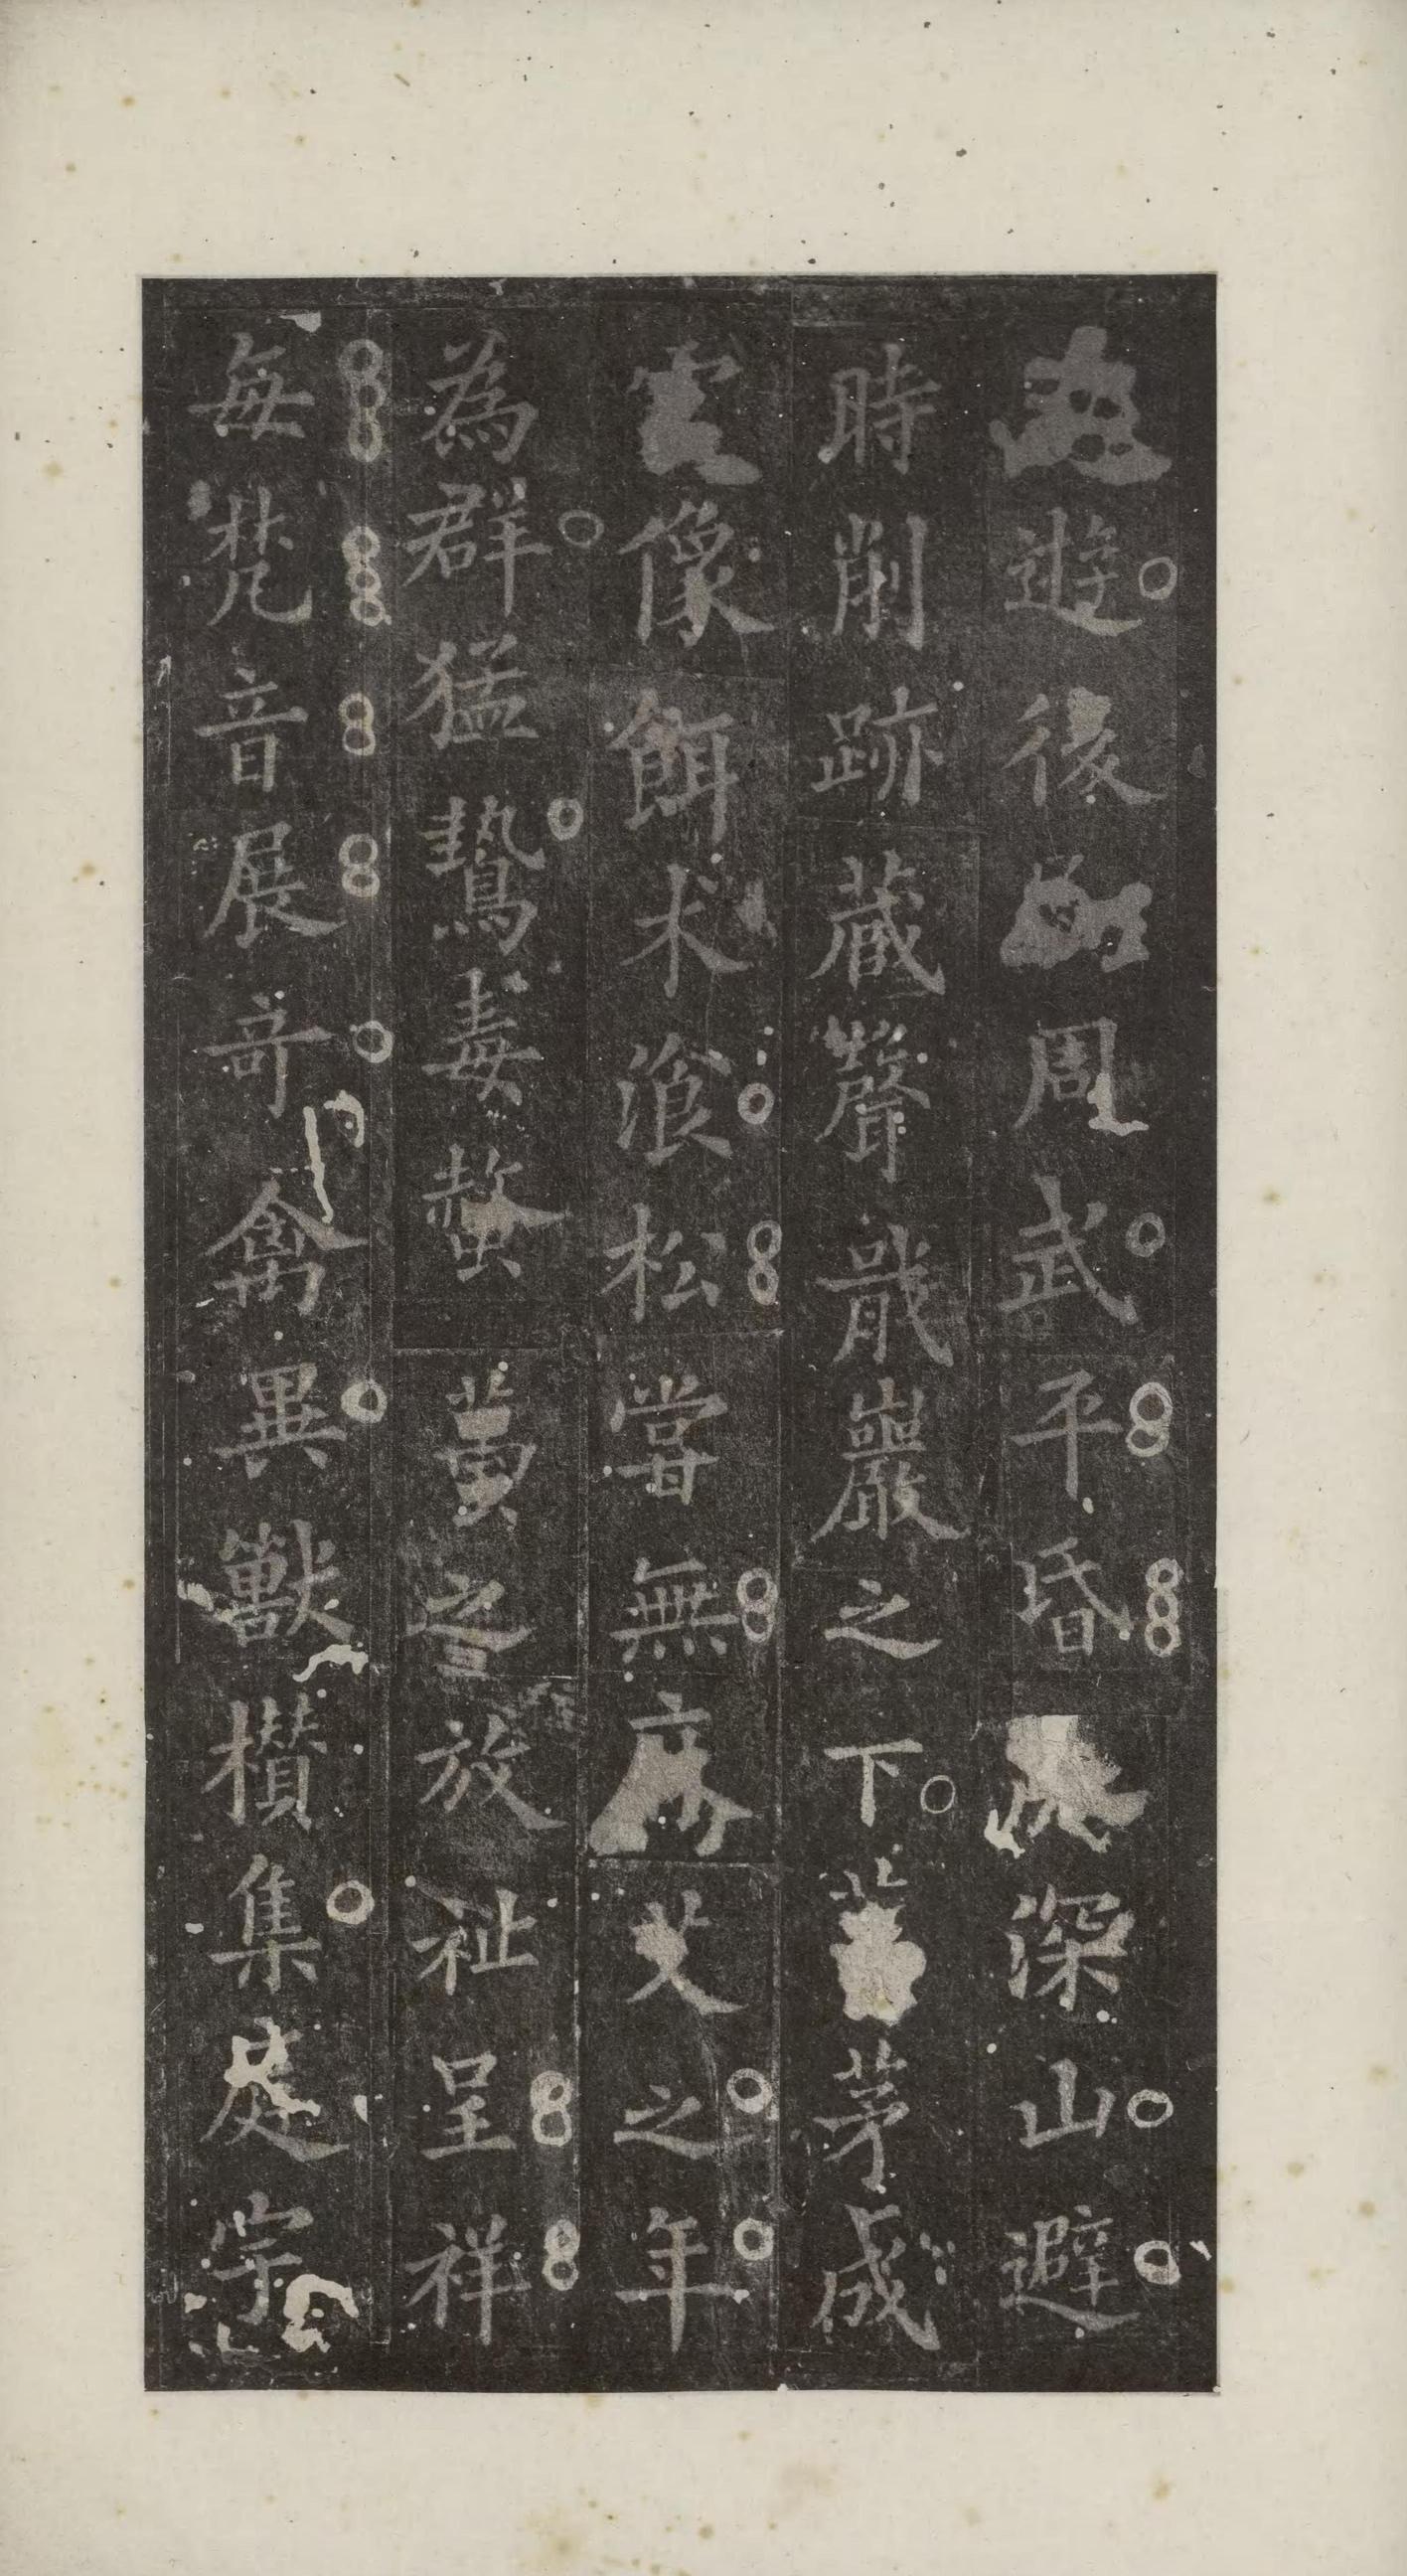 遊後周武平昏深山避
時削跡藏聲戢巖之下葺茅成
室像餌朮飡松嘗無麻艾之年
為群猛鷙毒螫黃之放祉呈祥
每梵音展奇禽異獸欑集庭宇